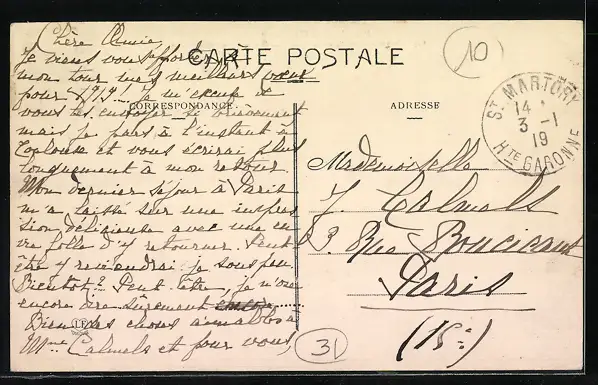 CARTE POSTALE
CORRESPONDANCE
ADRESSE
10
ST MARTORY
14
3 - 1
19
HTE GARONNE
Chère Amie,
Je viens vous apporter, à
mon tour mes meilleurs vœux
pour 1919! Je m'excuse de
vous les envoyer si brièvement
mais je pars à l'instant à
Toulouse et vous écrirai plus
longuement à mon retour.
Mon dernier séjour à Paris
m'a laissé sur une impres
sion délicieuse avec une en
vie folle d'y retourner. Peut
être y reviendrai-je sous peu.
Bientôt? Peut-être, je n'ose
encore dire sûrement
Bien des choses aimables à
Mme Calmels et pour vous,
Mademoiselle
J. Calmels
3. Rue Boucicaut
Paris
(15e)
31